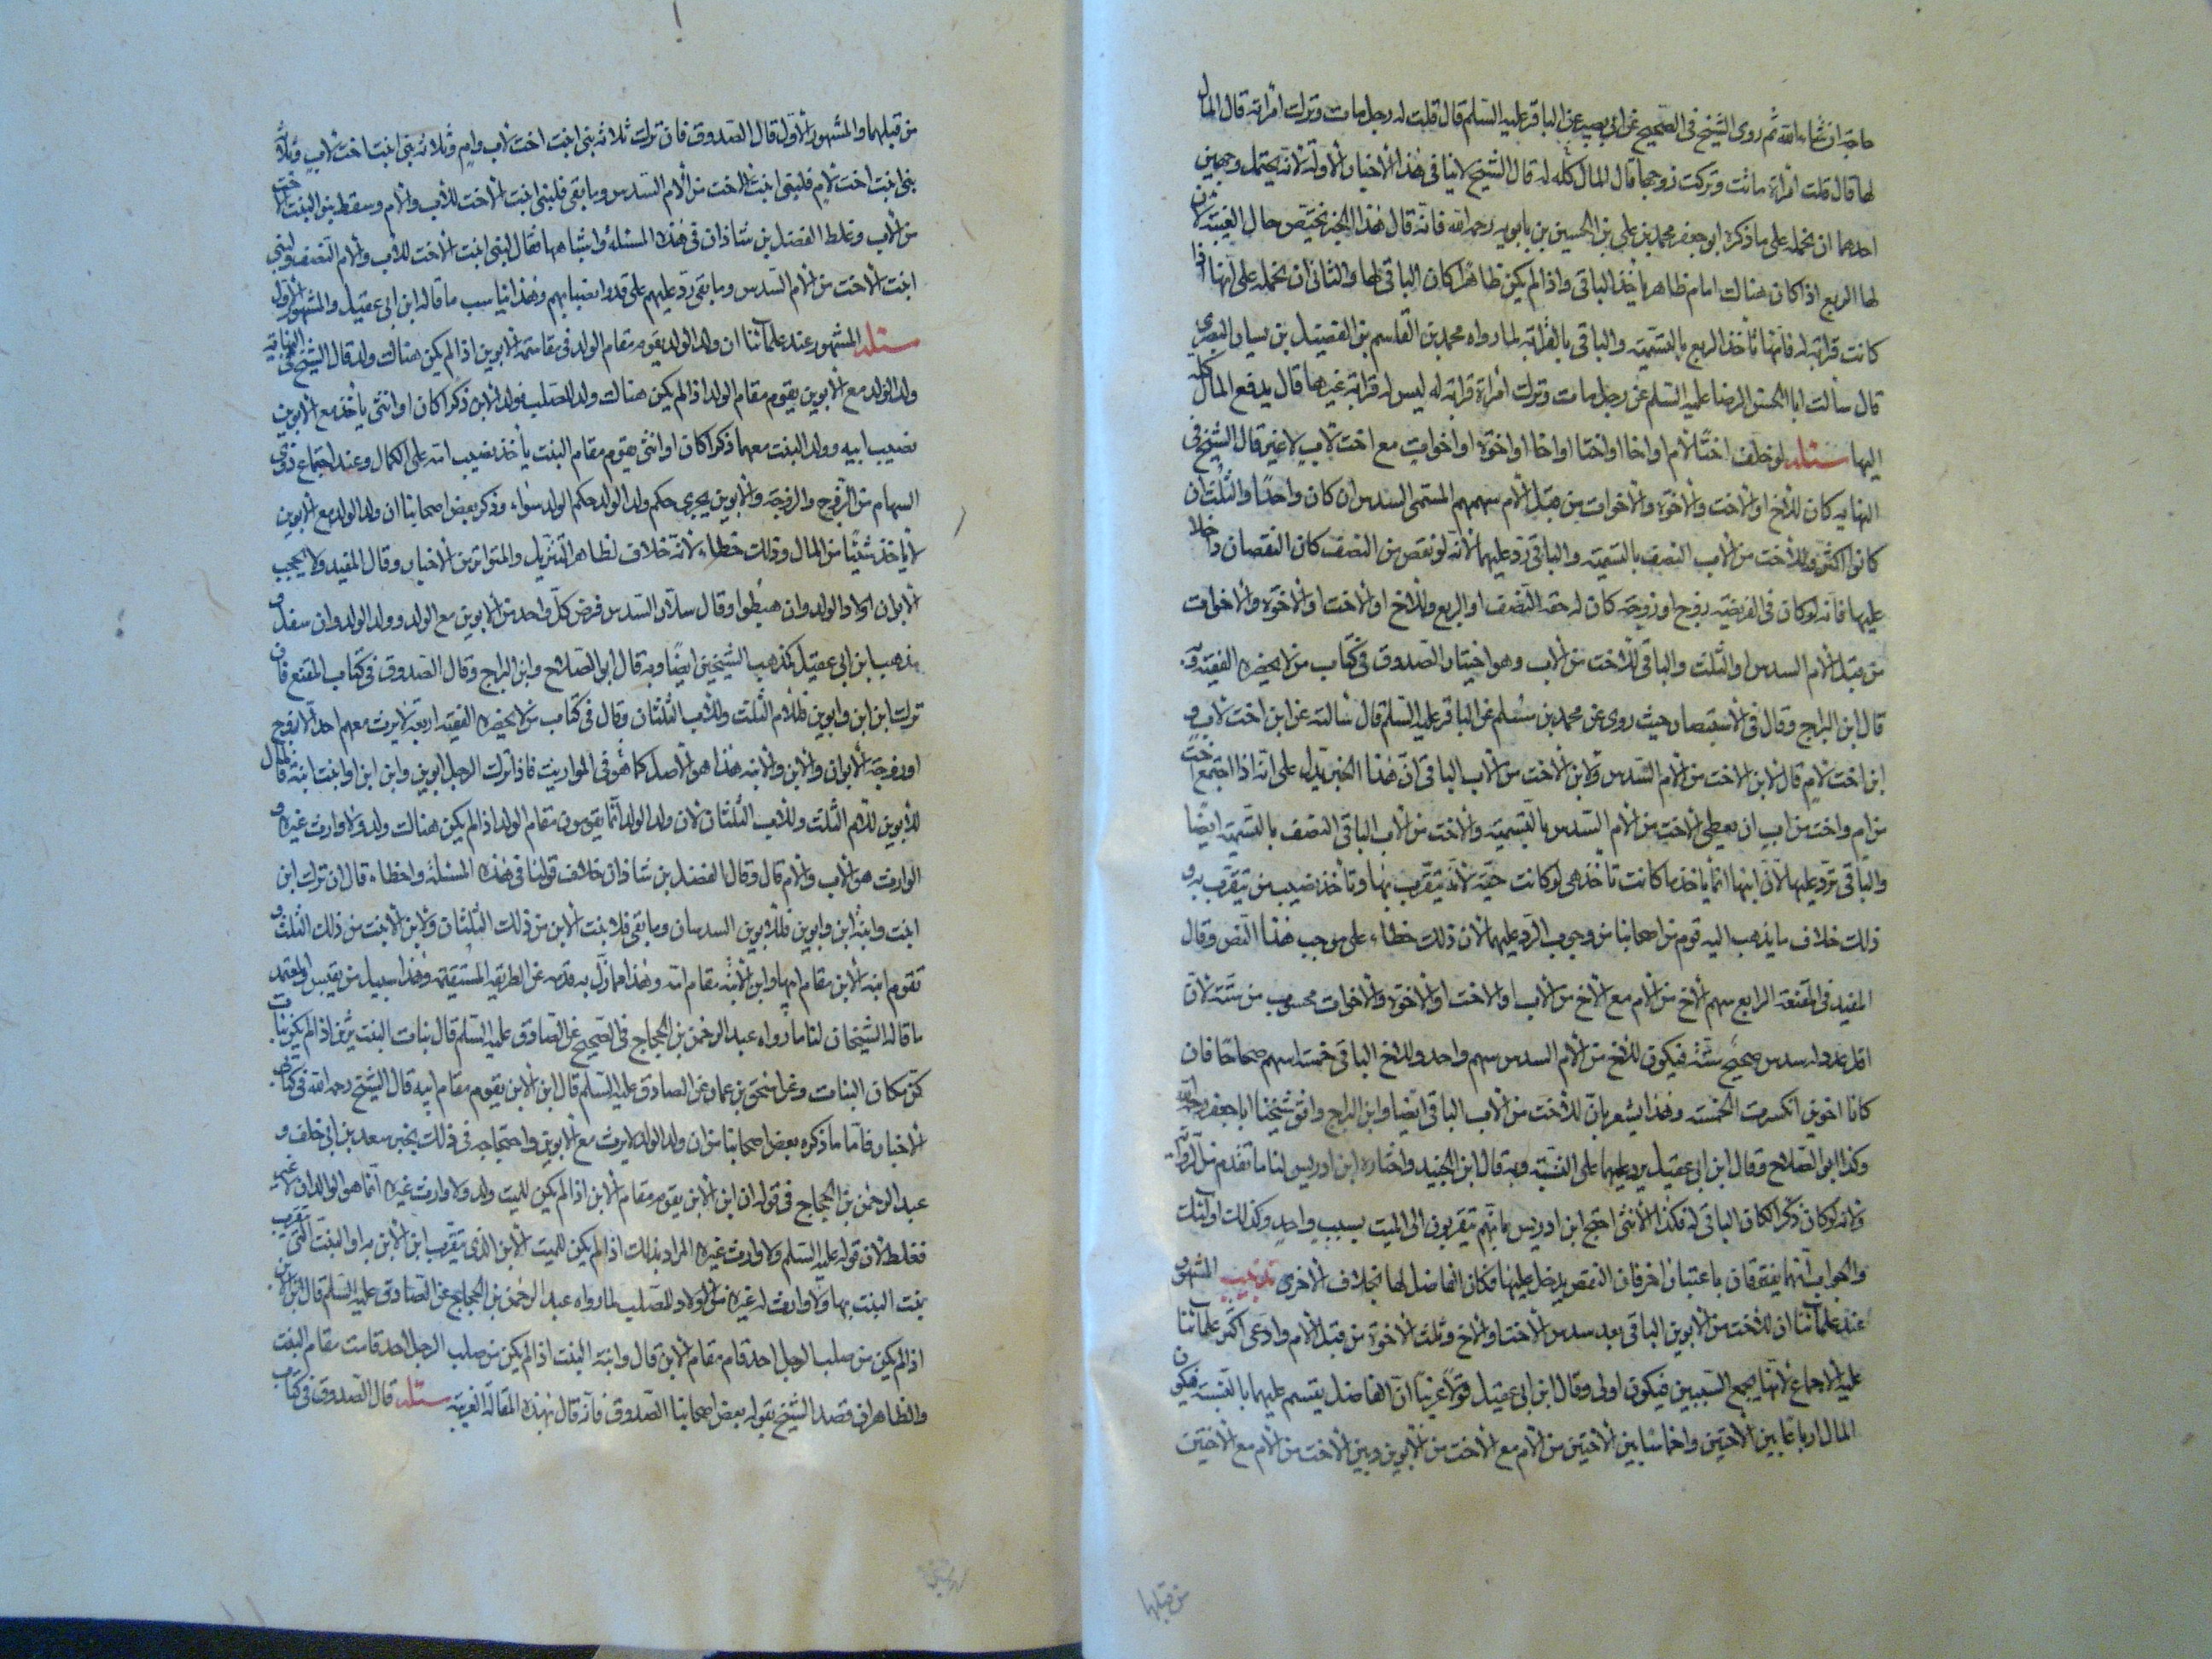 حاجة ان شاء الله ثم روى الشيخ في الصحيح عن ابي بصير عن الباقر عليه السلم قال قلت له رجل مات وترك امراته قال المال
لها قال قلت امرأة ماتت وتركت زوجها قال المال كله له قال الشيخ لا ينافي هذا الاخبار الاولة لانه يحتمل وجهين
احدهما ان نحمله على ما ذكره ابو جعفر محمد بن علي بن الحسين بن بابويه رحمه الله فانه قال هذا الخبر يختص حال الغيبة لان
لها الربع اذا كان هناك امام ظاهر ياخذ الباقي واذا لم يكن ظاهرا كان الباقي لها والثاني ان نحمله على انها اذا
كانت قرابة له فانها تأخذ الربع بالتسمية والباقي بالقرابة لما رواه محمد بن القاسم بن الفضيل بن يسار البصري
قال سألت ابا الحسن الرضا عليه السلم عن رجل مات وترك امرأة قرابة له ليس له قرابة غيرها قال يدفع المال كله
اليها مسئلة لو خلف اختا لام او اخا او اختا او اخا او اخوة او اخوات مع اخت لاب لا غير قال الشيخ في
النهاية كان للاخ او الاخت والاخوة والاخوات من قبل الام سهمهم المسمى السدس ان كان واحدا والثلث ان
كانوا اكثر وللاخت من الاب النصف بالتسمية والباقي رد عليها لانه لو نقص من النصف كان النقصان داخلا
عليها فانه لو كان في الفريضة زوج او زوجة كان له حقه النصف او الربع وللاخ او الاخت او الاخوة والاخوات
من قبل الام السدس او الثلث والباقي للاخت من الاب وهو اختيار الصدوق في كتاب من لا يحضره الفقيه وبه
قال ابن البراج وقال في الاستبصار حيث روى عن محمد بن مسلم عن الباقر عليه السلم قال سألته عن ابن اخت لاب و
ابن اخت لام قال لابن الاخت من الام السدس ولابن الاخت من الاب الباقي ان هذا الخبر يدل على انه اذا اجتمع اخت
من ام واخت من اب ان يعطى الاخت من الام السدس بالتسمية والاخت من الاب الباقي النصف بالتسمية ايضا
والباقي يرد عليها لان ابنها انما ياخذ ما كانت تأخذ هي لو كانت حية لانه يتقرب بها وتأخذ نصيب من تتقرب به و
ذلك خلاف ما يذهب اليه قوم من اصحابنا من وجوب الرد عليهما لان ذلك خطاء على موجب هذا النص وقال
المفيد في المقنعة الرابع سهم الاخ من الام مع الاخ من الاب او الاخت او الاخوة والاخوات محسوب من ستة لان
اقل عدد له سدس صحيح ستة فيكون للاخ من الام السدس سهم واحد وللاخ الباقي خمسة اسهم صحاحا فان
كانا اخوين انكسرت الخمسة وهذا يشعر بان للاخت من الاب الباقي ايضا وابن البراج وافق شيخنا ابا جعفر رحمه الله
وكذا ابو الصلاح وقال ابن ابي عقيل يرد عليهما على النسبة وبه قال ابن الجنيد واختاره ابن ادريس لنا ما تقدم من الرواية
ولانه لو كان ذكرا لكان الباقي له فكذا الانثى احتج ابن ادريس بانهم يتقربون الى الميت بسبب واحد وكذلك او الثلث
والجواب انهما يفترقان باعتبار اخر فان النقص يدخل عليها فكان الفاضل لها بخلاف الاخرى تذنيب المشهور
عند علمائنا ان للاخت من الابوين الباقي بعد سدس الاخت او الاخ وثلث الاخوة من قبل الام وادعى اكثر علمائنا
عليه الاجماع لانها يجمع السببين فيكون اولى وقال ابن ابي عقيل قولا غريبا ان الفاضل يقسم عليهما بالنسبة فيكون
المال ارباعا بين الاختين واخماسا بين الاختين من الام مع الاخت من الابوين وبين الاخت من الام مع الاختين
من قبلهما
من قبلهما والمشهور الاول قال الصدوق فان ترك ثلاثة بني ابنة اخت لاب وام وثلاثة بني ابنة اخت لاب وثلاثة
بني ابنة اخت لام فلبني ابنة الاخت من الام السدس وما بقي فلبني ابنة الاخت للاب والام وسقط بنو ابنة الاخت
من الاب وغلط الفضل بن شاذان في هذه المسئلة واشباهها فقال لبني ابنة الاخت للاب والام النصف ولبني
ابنة الاخت من الام السدس وما بقي رد عليهم على قدر انصبائهم وهذا يناسب ما قاله ابن ابي عقيل والمشهور الاول
مسئلة المشهور عند علمائنا ان ولد الولد يقوم مقام الولد في مقاسمة الابوين اذا لم يكن هناك ولد قال الشيخ في النهاية
ولد الولد مع الابوين يقوم مقام الولد اذا لم يكن هناك ولد للصلب فولد الابن ذكرا كان او انثى ياخذ مع الابوين
نصيب ابيه وولد البنت معهما ذكرا كان او انثى يقوم مقام البنت يأخذ نصيب امه على الكمال وعند اجتماع ذوي
السهام من الزوج والزوجة والابوين يجري حكم ولد الولد حكم الولد سواء وذكر بعض اصحابنا ان ولد الولد مع الابوين
لا ياخذ شيئا من المال وذلك خطاء لانه خلاف لظاهر التنزيل والمتواتر من الاخبار وقال المفيد ولا يحجب
الابوان اولاد الولد وان هبطوا وقال سلار السدس فرض كل واحد من الابوين مع الولد وولد الولد وان سفل و
مذهب ابن ابي عقيل كمذهب الشيخين ايضا وبه قال ابو الصلاح وابن البراج وقال الصدوق في كتاب المقنع فان
ترك ابن ابن وابوين فللام الثلث وللاب الثلثان وقال في كتاب من لا يحضره الفقيه اربعة لا يرث معهم احد الا زوج
او زوجة الابوان والابن والابنة هذا هو الاصل كما هو في المواريث فاذا ترك الرجل ابوين وابن ابن او ابنة ابنة فالمال
للابوين للام الثلث وللاب الثلثان لان ولد الولد انما يقومون مقام الولد اذا لم يكن هناك ولد ولا وارث غيره و
الوارث هو الاب والام قال وقال الفضل بن شاذان خلاف قولنا في هذه المسئلة واخطاء قال ان ترك ابن
ابنة وابنة ابن وابوين فللابوين السدسان وما بقي فلابنة الابن من ذلك الثلثان ولابن الابنة من ذلك الثلث و
تقوم ابنة الابن مقام ابيها وابن الابنة مقام امه وهذا مما زل به قدمه عن الطريقة المستقيمة وهذا سبيل من يقيس والمعتمد
ما قاله الشيخان لنا ما رواه عبد الرحمن بن الحجاج في الصحيح عن الصادق عليه السلم قال بنات البنت يرثن اذا لم يكن بنات
كن مكان البنات وعن اسحق بن عمار عن الصادق عليه السلم قال ابن الابن يقوم مقام ابيه قال الشيخ رحمه الله في كتاب
الاخبار فاما ما ذكره بعض اصحابنا من ان ولد الولد لا يرث مع الابوين واحتجاجه في ذلك بخبر سعد بن ابي خلف و
عبد الرحمن بن الحجاج في قوله ان ابن الابن يقوم مقام الابن اذا لم يكن للميت ولد ولا وارث غيره انما هو الوالدان لا غير
فغلط لان قوله عليه السلم ولا وارث غيره المراد بذلك اذا لم يكن للميت الابن الذي يتقرب ابن الابن به او البنت التي تتقرب
بنت البنت بها ولا وارث له غيره من الاولاد للصلب لما رواه عبد الرحمن بن الحجاج عن الصادق عليه السلم قال ابن الابن
اذا لم يكن من صلب الرجل احد قام مقام الابن قال وابنة البنت اذا لم يكن من صلب الرجل احد قامت مقام البنت
والظاهر ان قصد الشيخ بقوله بعض اصحابنا الصدوق فانه قال بهذه المقالة الغريبة مسئلة قال الصدوق في كتاب